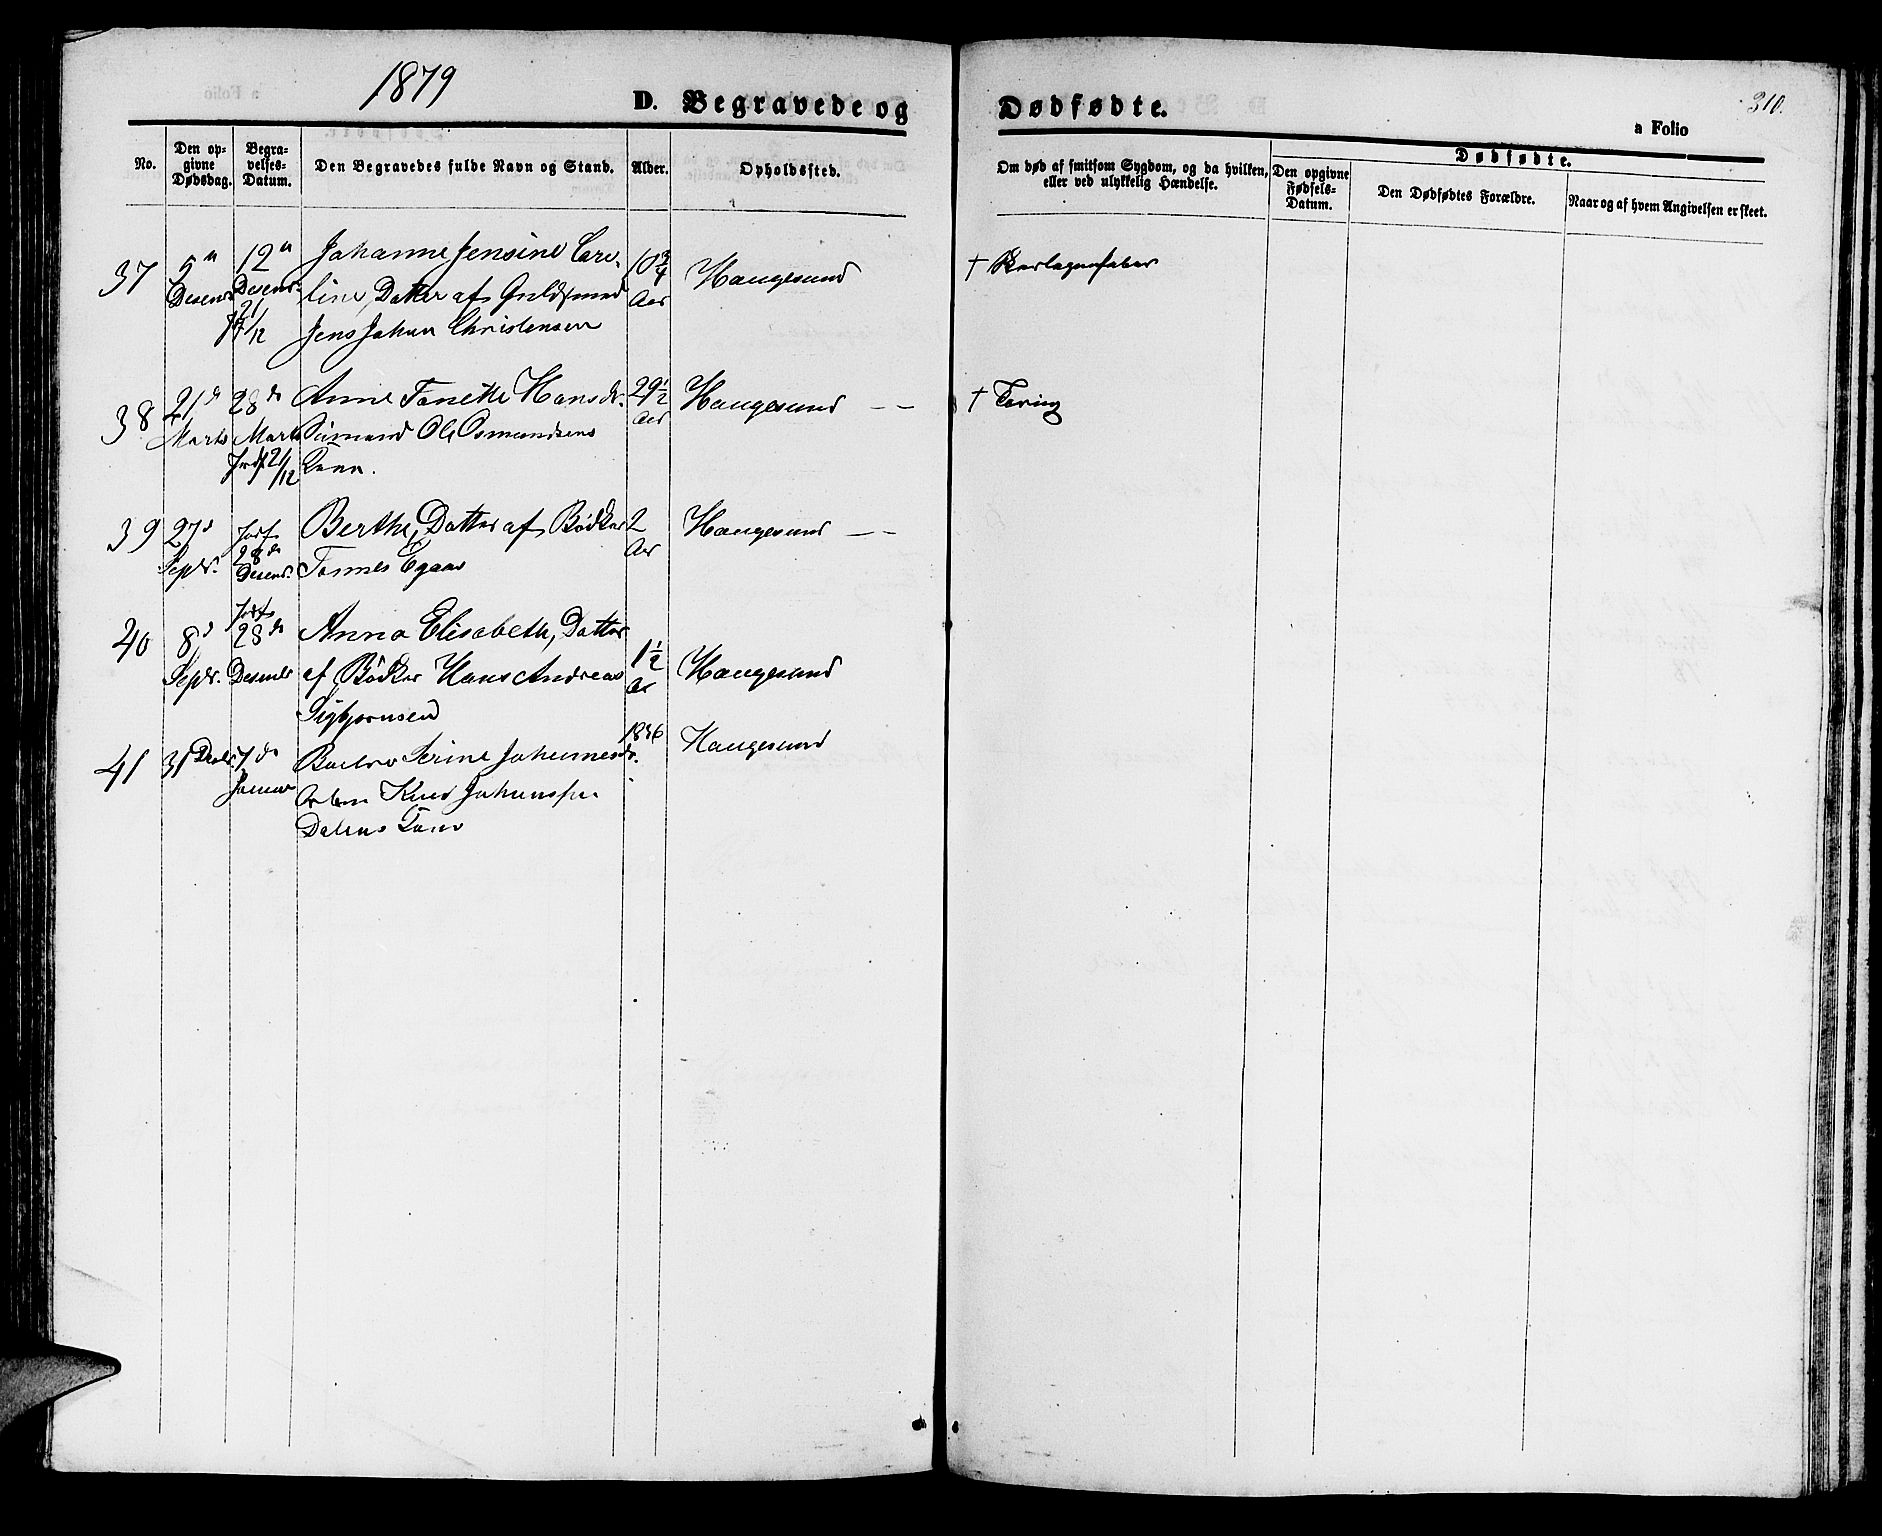 1879
D. Begravede og Dødfødte.
310.
a Folio
No.
Den op-
givne
Dødsdag.
Begra-
velses-
Datum.
Den Begravedes fulde Navn og Stand.
Alder.
Opholdssted.
Om død af smitsom Sygdom, og da hvilken,
eller ved ulykkelig Hændelse.
Dødfødte.
Den opgivne
Fødsels-
Datum.
Den Dødfødtes Forældre.
Naar og af hvem Angivelsen er skeet.
37
5te
Desembr
12te
Desembr
21/12
Johanne Jensine Caro-
line, Datter af Guldsmed
Jens Johan Christensen
10 3/4
Aar
Haugesund
† Skarlagensfeber
38
21de
Marts
28de
Marts
Jordf 21/12
Anne Tonette Hansdr.
Sømand Ole Osmundsens
Kone.
29 1/2
Aar
Haugesund — —
† Tæring
39
27de
Septr.
Jordf
28de
Desembr.
Berthe, Datter af Bødker
Tønnes Egaas
2
Aar
Haugesund — —
40
8de
Septr.
Jordf
28de
Desembr
Anna Elisabeth, Datter
af Bødker Hans Andreas
Sigbjørnsen
1 1/2
Aar
Haugesund
41
31 Desbr.
7de
Januar
Serine Johannesdr.
Knud Johannessen
1836
Haugesund